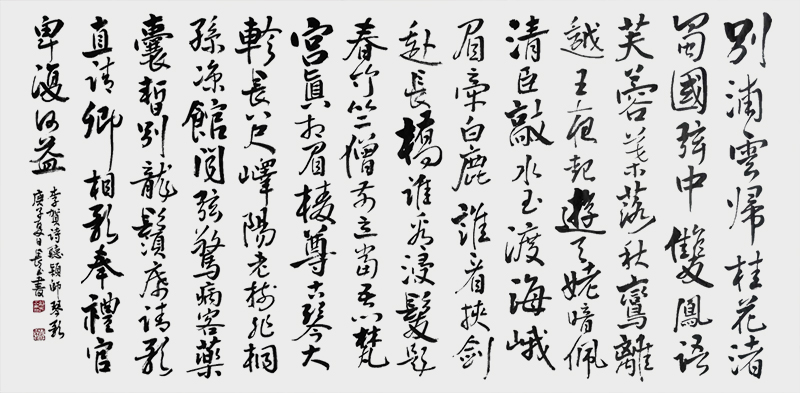 別浦雲歸桂花渚
蜀國弦中雙鳳語
芙蓉葉落秋鸞離
越王夜起遊天姥暗佩
清臣敲水玉渡海峨
眉牽白鹿誰看挾劍
赴長橋誰看浸髮題
春竹竺僧前立當吾門梵
宮真相眉棱尊古琴大
軫長八尺嶧陽老樹非桐
孫涼館聞弦驚病客藥
囊暫別龍鬚席請歌
直請卿相歌奉禮官
卑復何益
李賀詩聽穎師琴歌
庚子夏日書